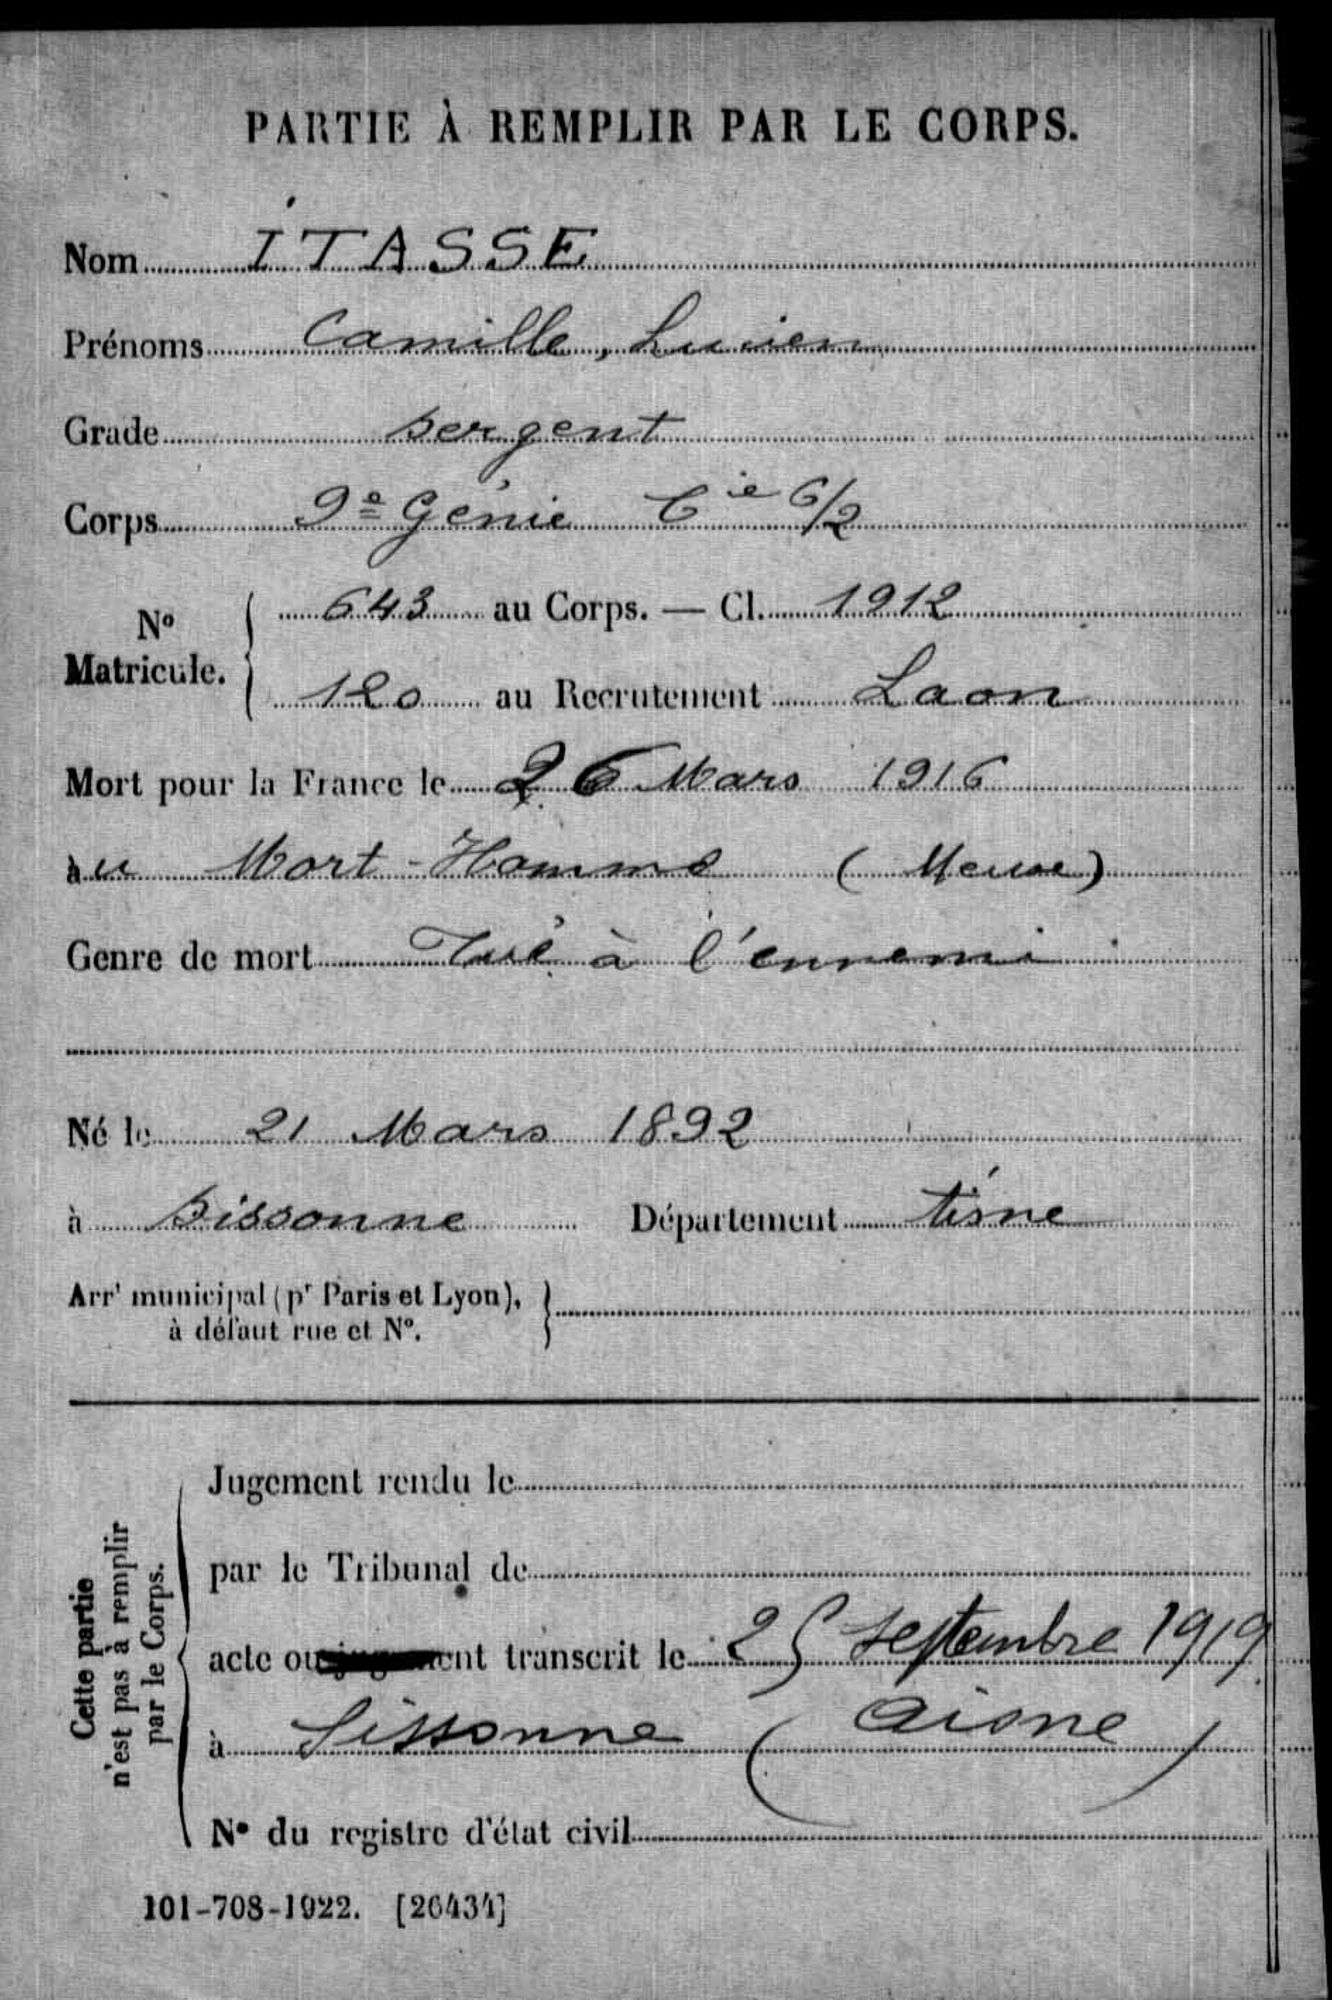 PARTIE À REMPLIR PAR LE CORPS.
Nom ITASSE
Prénoms Camille, Lucien
Grade Sergent
Corps 9e Génie Cie 6/2
No Matricule. 643 au Corps. — Cl. 1912
120 au Recrutement Laon
Mort pour la France le 26 Mars 1916
au Mort-Homme (Meuse)
Genre de mort Tué à l'ennemi
Né le 21 Mars 1892
à Sissonne Département Aisne
Arrt municipal (pr Paris et Lyon),
à défaut rue et No.
Cette partie
n'est pas à remplir
par le Corps.
Jugement rendu le
par le Tribunal de
acte ou jugement transcrit le 25 septembre 1919
à Sissonne (Aisne)
No du registre d'état civil
101-708-1922. [26434]